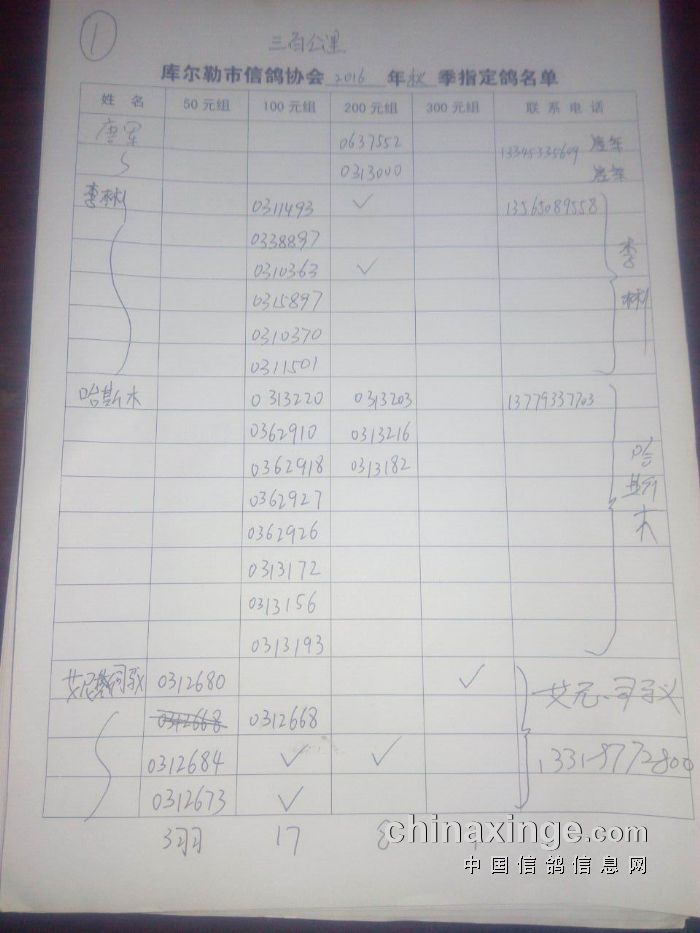 1
三百公里
库尔勒市信鸽协会 2016 年 秋 季指定鸽名单
姓 名 50元组 100元组 200元组 300元组 联系电话
唐军 0637552 13345335609 唐军
0313000 唐军
李林 0311493 ✓ 13565089558 李林
0338897
0310363 ✓
0315897
0310370
0311501
哈斯木 0313220 0313203 13779337703 哈斯木
0362910 0313216
0362918 0313182
0362927
0362926
0313172
0313156
0313193
0312680 ✓
0312668 0312668
0312684 ✓ ✓ 13318772800
0312673 ✓
3羽 17 8
chinaxinge.com
中国信鸽信息网